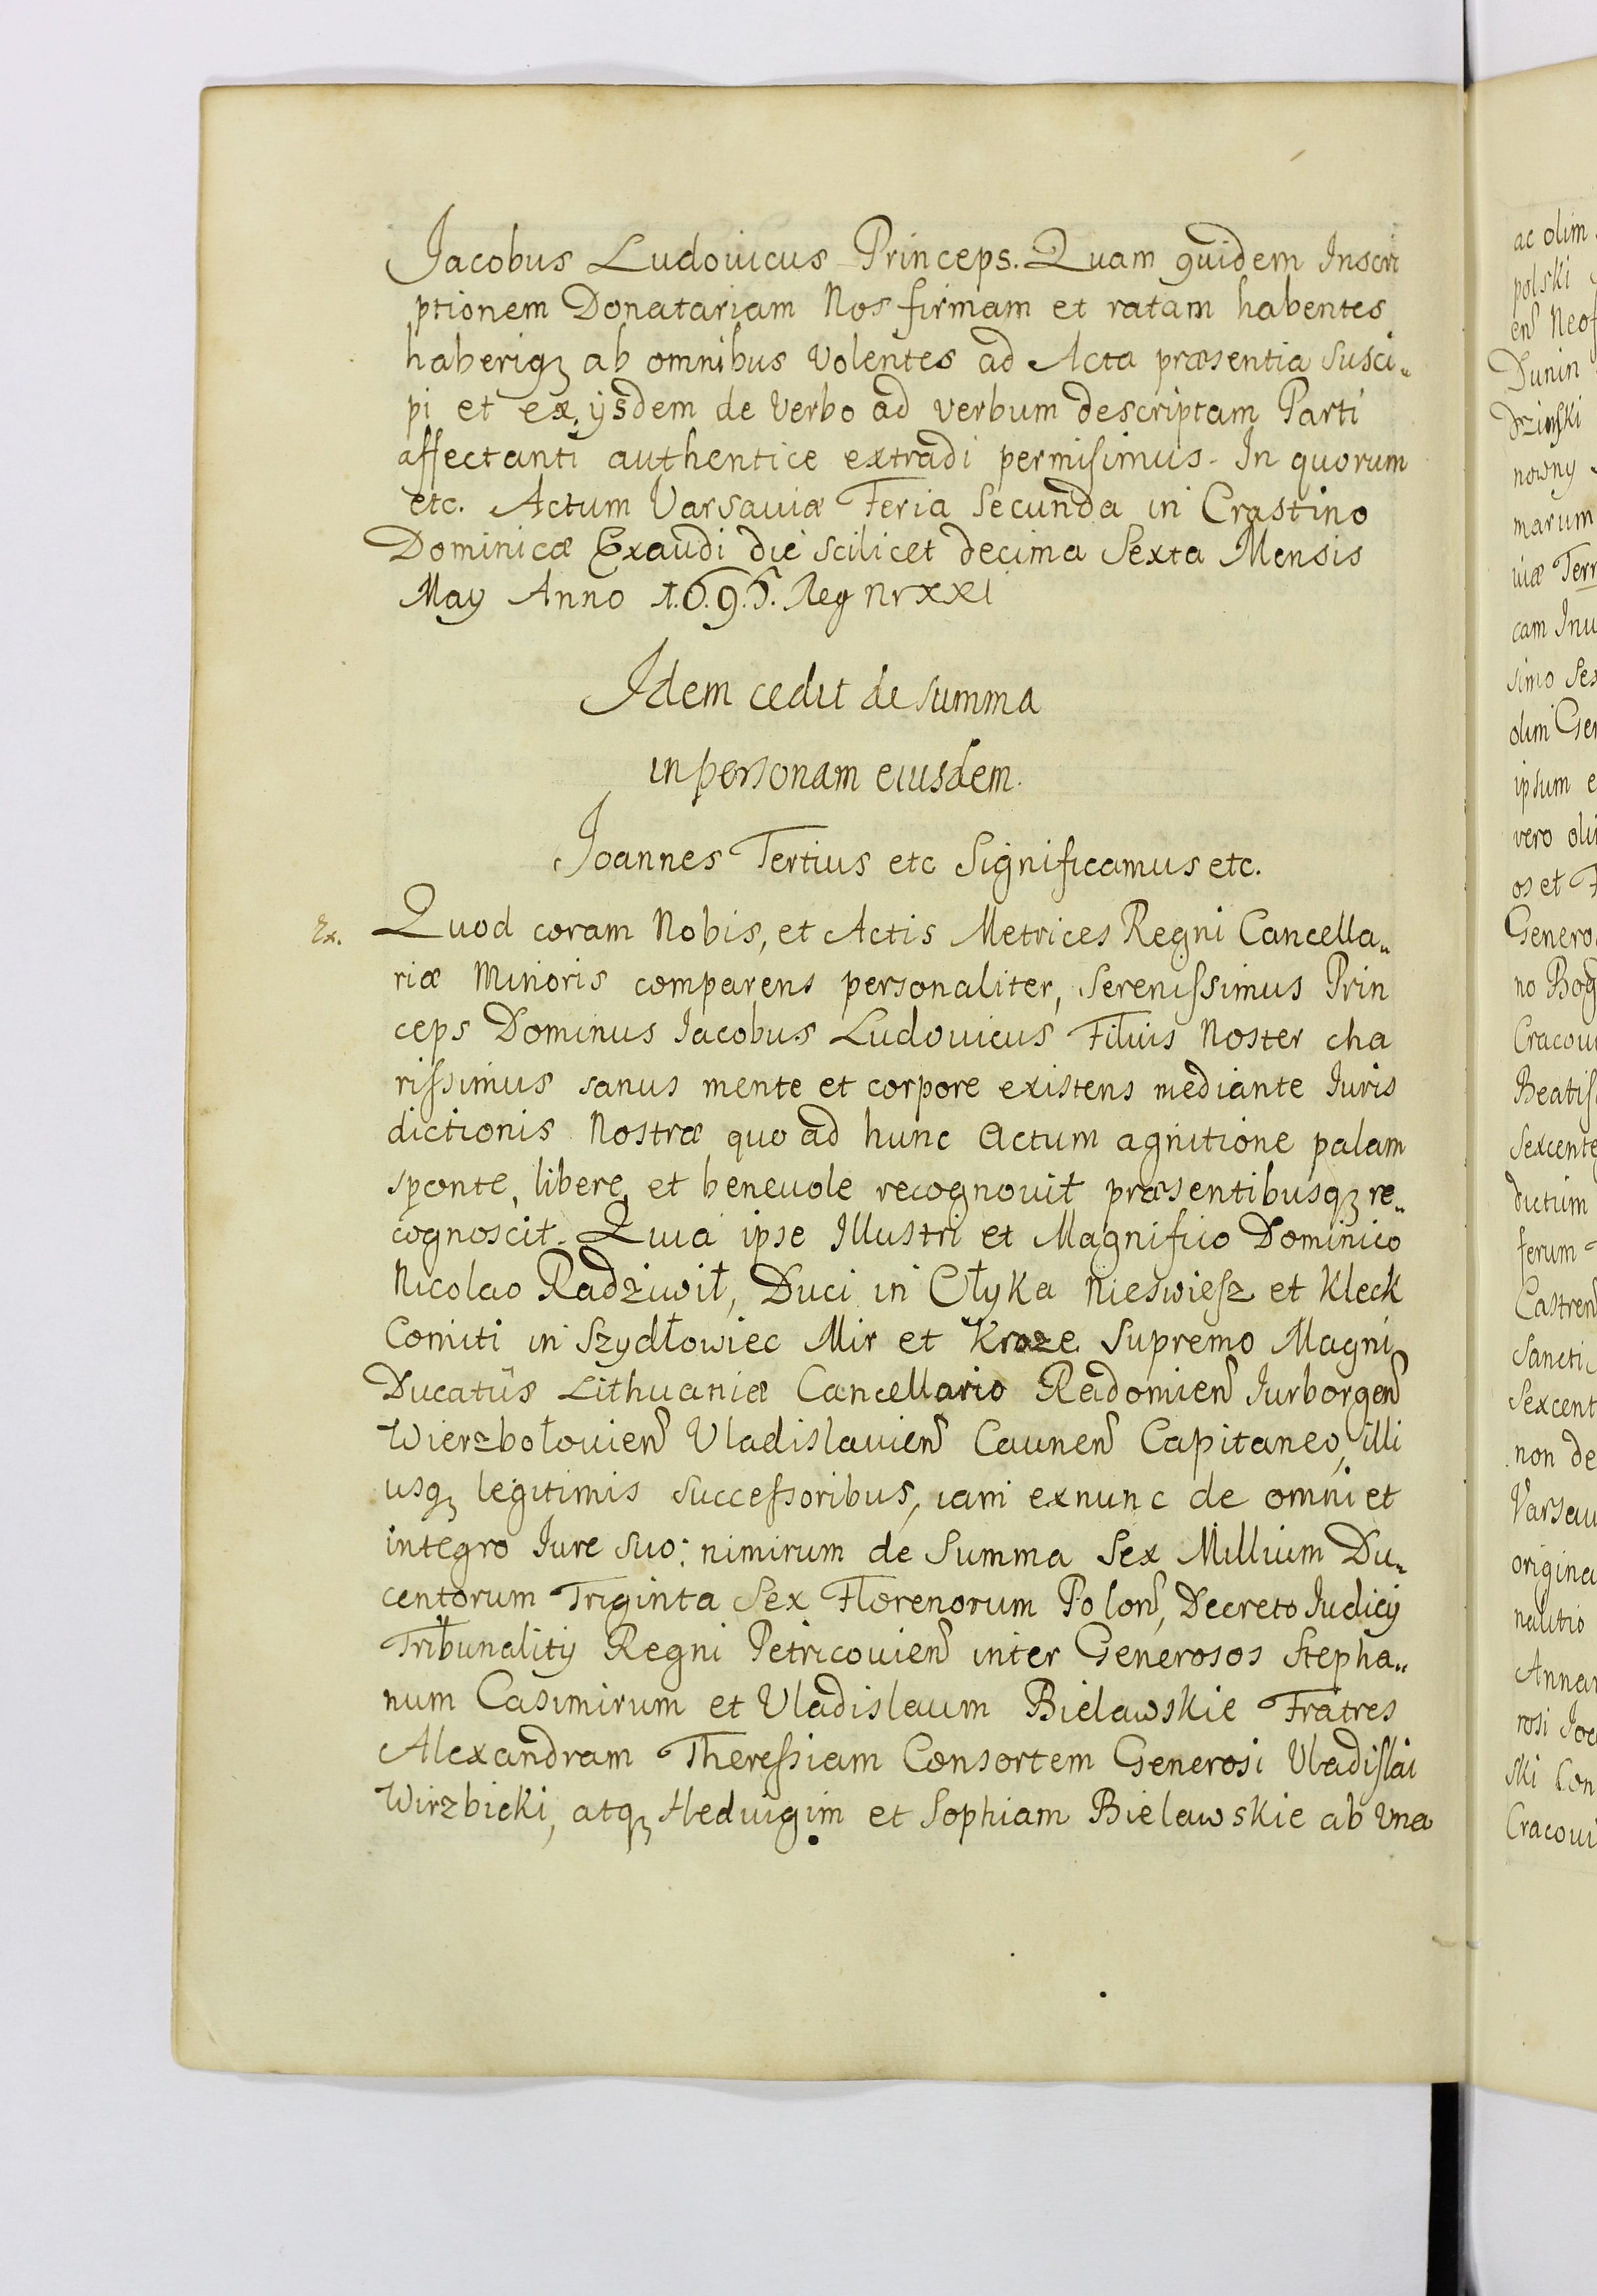 Jacobus Ludouicus Princeps. Quam quidem Inscri
ptionem Donatariam Nos firmam et ratam habentes
haberiqꝫ ab omnibus Volentes ad Acta præsentia Susci„
pi et ex ijsdem de Verbo ad verbum descriptam Parti
affectanti authentice extradi permisimus. In quorum
etc. Actum Varsauiæ Feria Secunda in Crastino
Dominicæ Exaudi die scilicet decima Sexta Mensis
May Anno 1.6.9.5. Reg Nr XXI
Idem cedit de summa
in personam eiusdem.
Joannes Tertius etc Significamus etc.
Ex. Quod coram Nobis, et Actis Metrices Regni Cancella„
riæ Minoris comparens personaliter, Serenissimus Prin
ceps Dominus Jacobus Ludouicus Filius Noster cha
rissimus sanus mente et corpore existens mediante Iuris
dictionis Nostræ quo ad hunc Actum agnitione palam
sponte, libere, et beneuole recognouit præsentibusqꝫ re„
cognoscit. Quia ipse Illustri et Magnifico Dominico
Nicolao Radziwił, Duci in Ołyka Nieswiesz et Kleck
Comiti in Szydłowiec Mir et Kroze Supremo Magni
Ducatûs Lithuaniæ Cancellario Radomien Iurborgen
Wierzbołouien Vladislauien Caunen Capitaneo, illi
usqꝫ legitimis successoribus, iam exnunc de omni et
integro Iure suo: nimirum de Summa Sex Millium Du„
centorum Triginta Sex Florenorum Polon, Decreto Iudicij
Tribunalitij Regni Petricouien inter Generosos Stepha„
num Casimirum et Vladislaum Bielawskie Fratres
Alexandram Theressiam Consortem Generosi Vladislai
Wirzbicki, atqꝫ Heduigim et Sophiam Bielawskie ab Vna
ac olim
polski
en Neof
Dunin
nowny
marum
uiæ Terr
cam Inu
simo Sex
olim Gen
ipsum e
vero oli
os et F
Genero
no Bog
Cracoui
Beatis
Sexcente
dictum
ferum
Castren
Sancti
Sexcent
non de
Varsau
origina
Annam
rosi Joa
ski Con
Cracoui